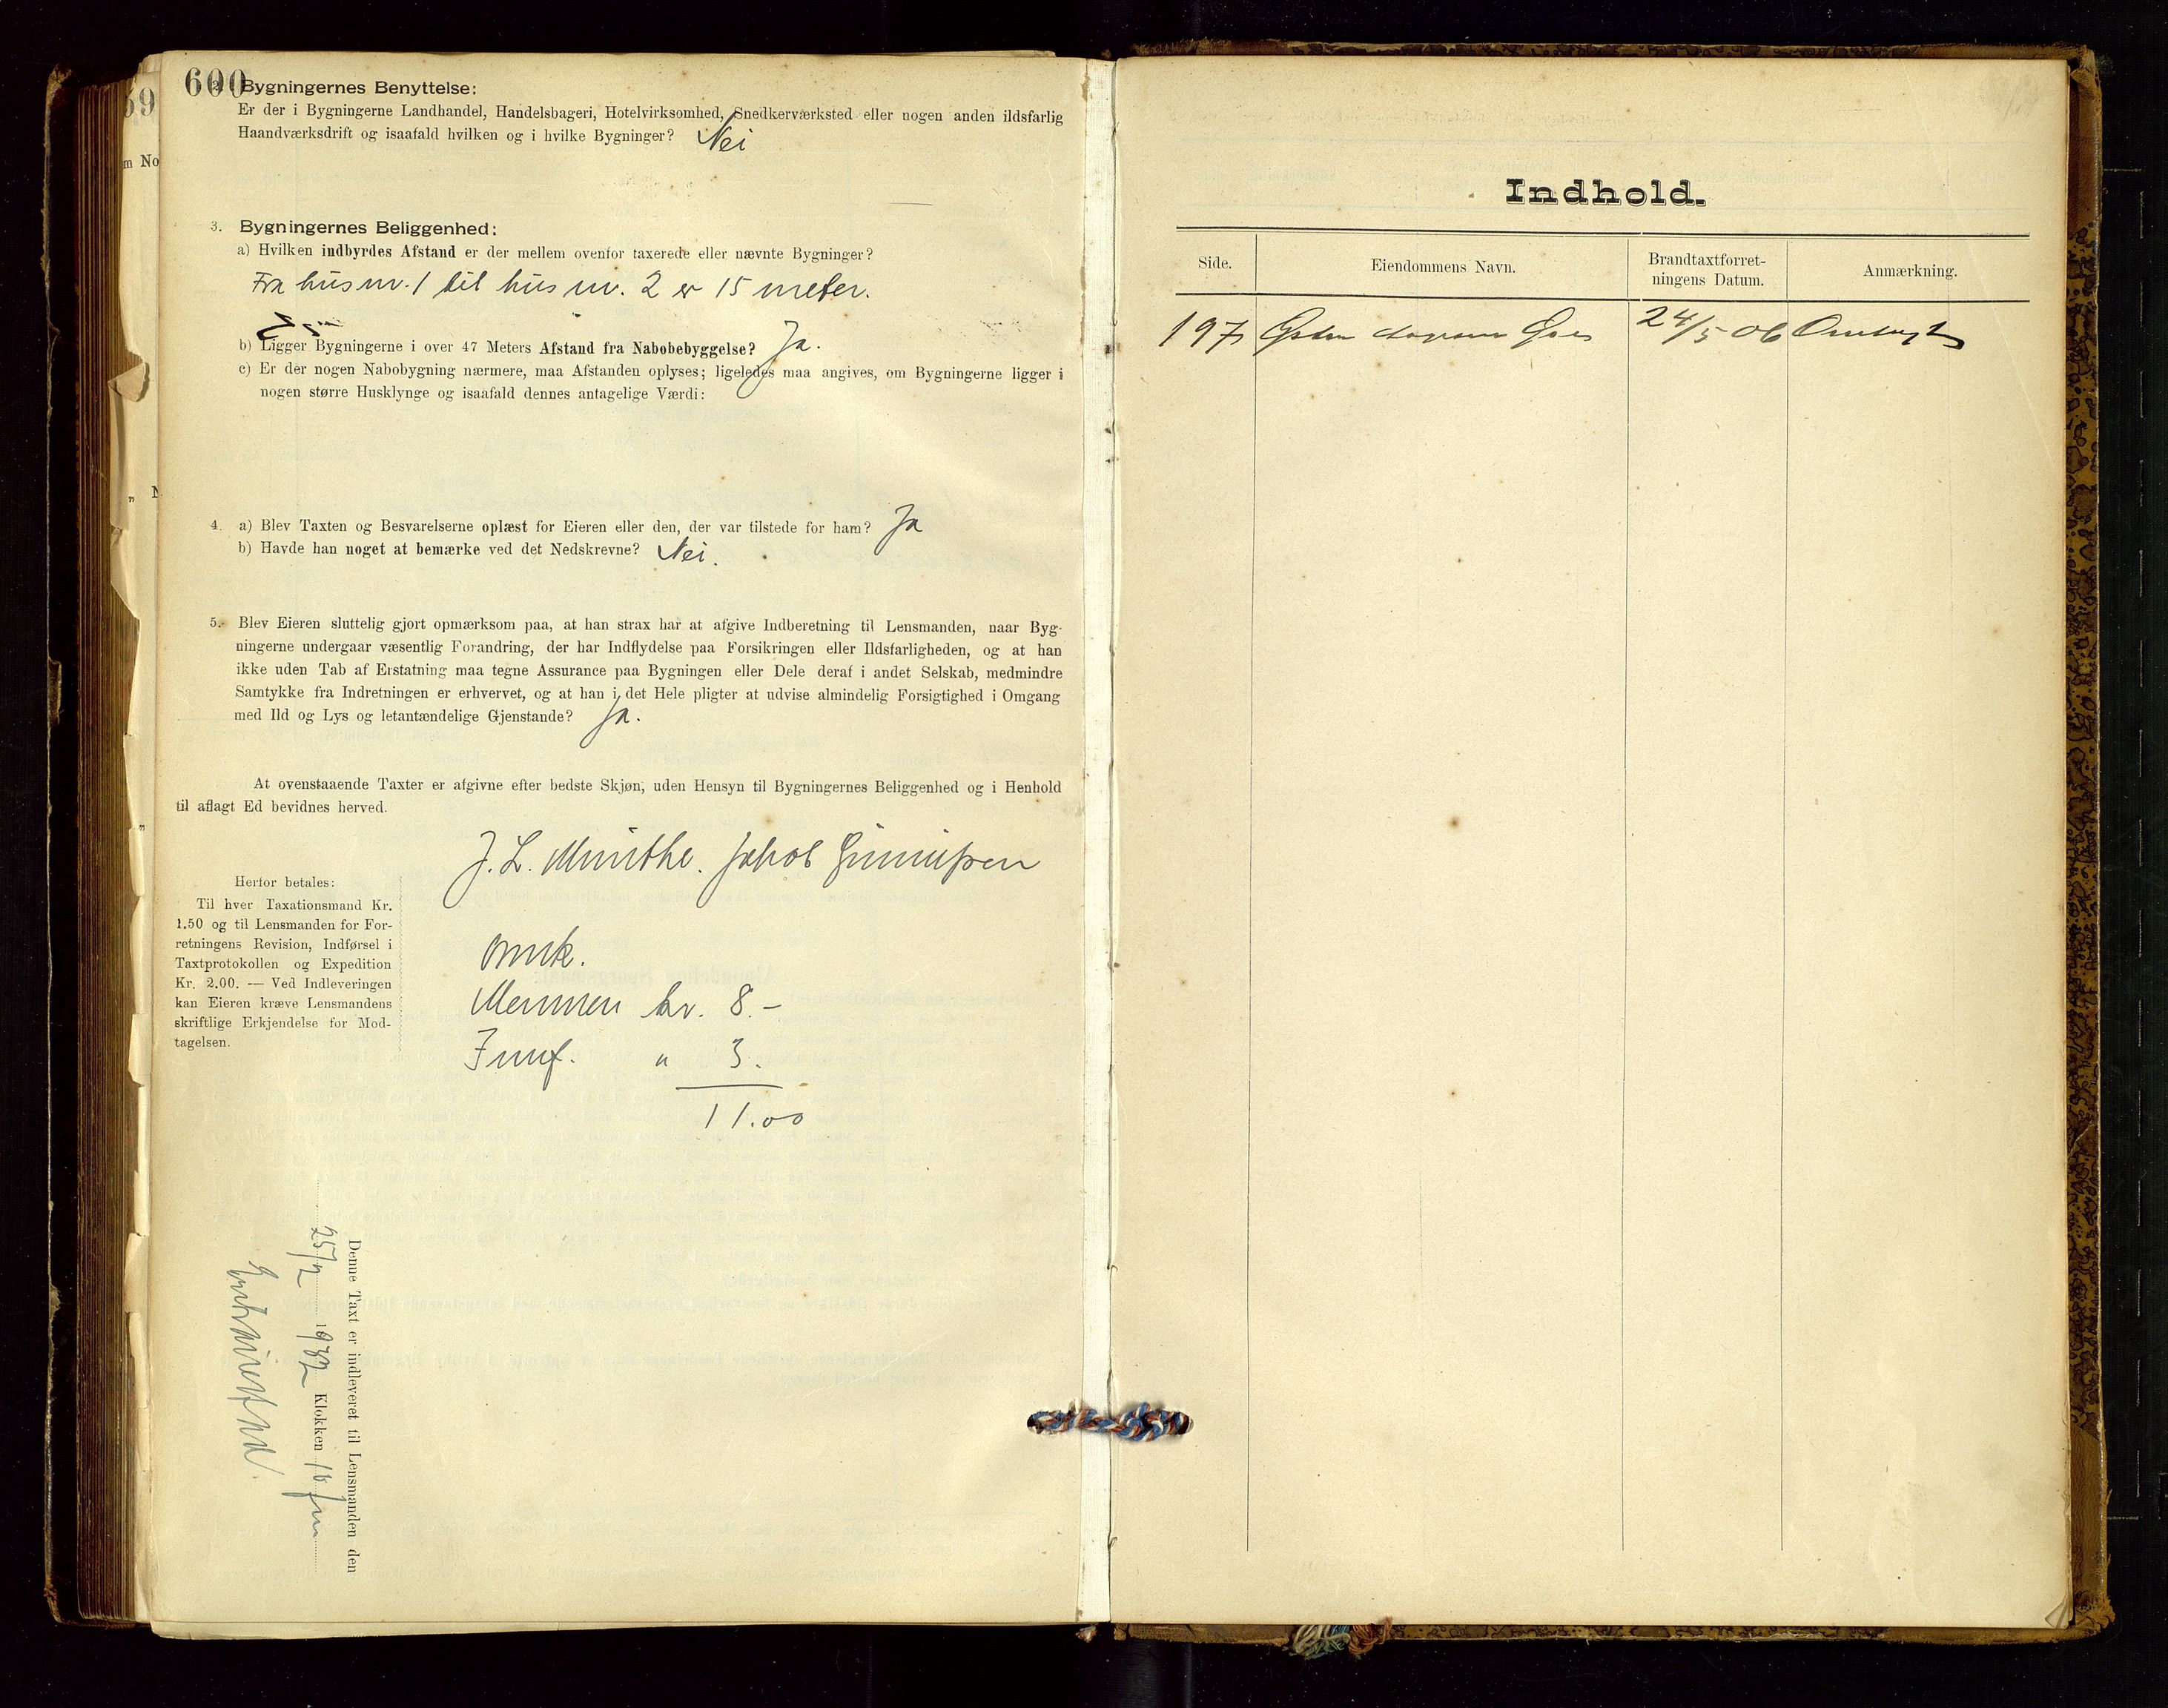 600
Bygningernes Benyttelse:
Er der i Bygningerne Landhandel, Handelsbageri, Hotelvirksomhed, Snedkerværksted eller nogen anden ildsfarlig
Haandværksdrift og isaafald hvilken og i hvilke Bygninger? Nei
3. Bygningernes Beliggenhed:
a) Hvilken indbyrdes Afstand er der mellem ovenfor taxerede eller nævnte Bygninger?
Fra hus nr. 1 til hus nr. 2 er 15 meter.
b) Ligger Bygningerne i over 47 Meters Afstand fra Nabobebyggelse? Ja.
c) Er der nogen Nabobygning nærmere, maa Afstanden oplyses; ligeledes maa angives, om Bygningerne ligger i
nogen større Husklynge og isaafald dennes antagelige Værdi:
4. a) Blev Taxten og Besvarelserne oplæst for Eieren eller den, der var tilstede for ham? Ja
b) Havde han noget at bemærke ved det Nedskrevne? Nei.
5. Blev Eieren sluttelig gjort opmærksom paa, at han strax har at afgive Indberetning til Lensmanden, naar Byg-
ningerne undergaar væsentlig Forandring, der har Indflydelse paa Forsikringen eller Ildsfarligheden, og at han
ikke uden Tab af Erstatning maa tegne Assurance paa Bygningen eller Dele deraf i andet Selskab, medmindre
Samtykke fra Indretningen er erhvervet, og at han i det Hele pligter at udvise almindelig Forsigtighed i Omgang
med Ild og Lys og letantændelige Gjenstande? Ja.
At ovenstaaende Taxter er afgivne efter bedste Skjøn, uden Hensyn til Bygningernes Beliggenhed og i Henhold
til aflagt Ed bevidnes herved.
J. L. Munthe. Jakob
Herfor betales:
Til hver Taxationsmand Kr.
1.50 og til Lensmanden for For-
retningens Revision, Indførsel i
Taxtprotokollen og Expedition
Kr. 2.00. — Ved Indleveringen
kan Eieren kræve Lensmandens
skriftlige Erkjendelse for Mod-
tagelsen.
Omk.
Mennen kr. 8.-
" 3.
11.00
Denne Taxt er indleveret til Lensmanden den
25/2 1932 Klokken 16
59
m No
Indhold.
Side.
Eiendommens Navn.
Brandtaxtforret-
ningens Datum.
Anmærkning.
197 24/5 06